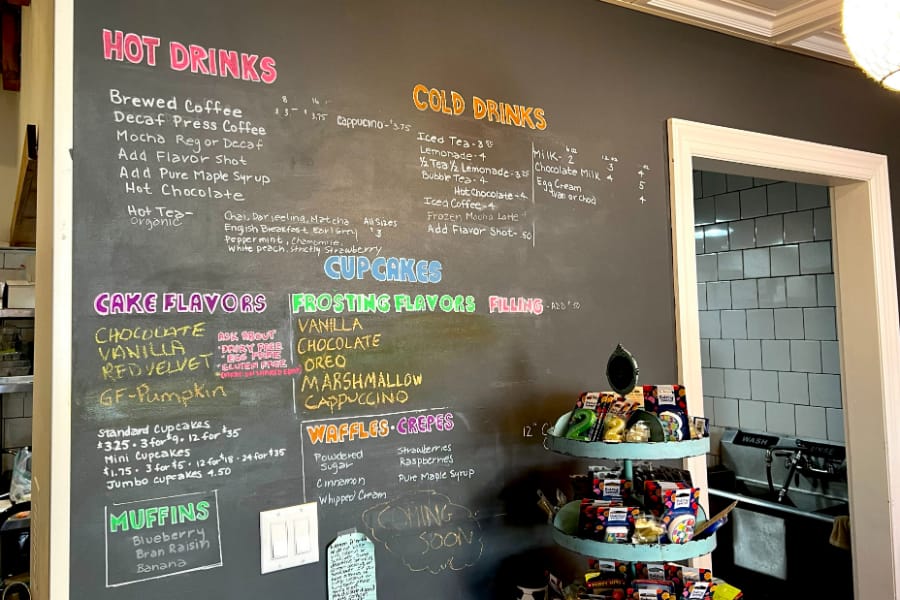 HOT DRINKS
Brewed Coffee
Decaf Press Coffee
Mocha Reg or Decaf
Add Flavor Shot
Add Pure Maple Syrup
Hot Chocolate
8 16
$3.75
Cappuccino - $3.75
Hot Tea-
Organic
Chai, Darjeeling, Matcha
English Breakfast, Earl Grey
Peppermint, Chamomile,
White peach, Strictly Strawberry
All Sizes
$3
COLD DRINKS
Iced Tea - 3
Lemonade - 4
1/2 Tea 1/2 Lemonade - 3
Bubble Tea - 4
Hot Chocolate - 4
Iced Coffee - 4
Frozen Mocha Latte
Add Flavor Shot - .50
Milk - 2 3 4
Chocolate Milk 4 5
Egg Cream 4
Van or Choc
CUPCAKES
CAKE FLAVORS
CHOCOLATE
VANILLA
RED VELVET
GF-Pumpkin
ASK ABOUT
*DAIRY FREE
*EGG FREE
*GLUTEN FREE
Standard Cupcakes
$3.25 · 3 for $9 · 12 for $35
Mini Cupcakes
$1.75 · 3 for $5 · 12 for $18 · 24 for $35
Jumbo Cupcakes 4.50
FROSTING FLAVORS
VANILLA
CHOCOLATE
OREO
MARSHMALLOW
CAPPUCCINO
FILLING - ADD $.50
WAFFLES - CREPES
Powdered
Sugar
Cinnamon
Whipped Cream
Strawberries
Raspberries
Pure Maple Syrup
12"
MUFFINS
Blueberry
Bran Raisin
Banana
COMING
SOON
WASH